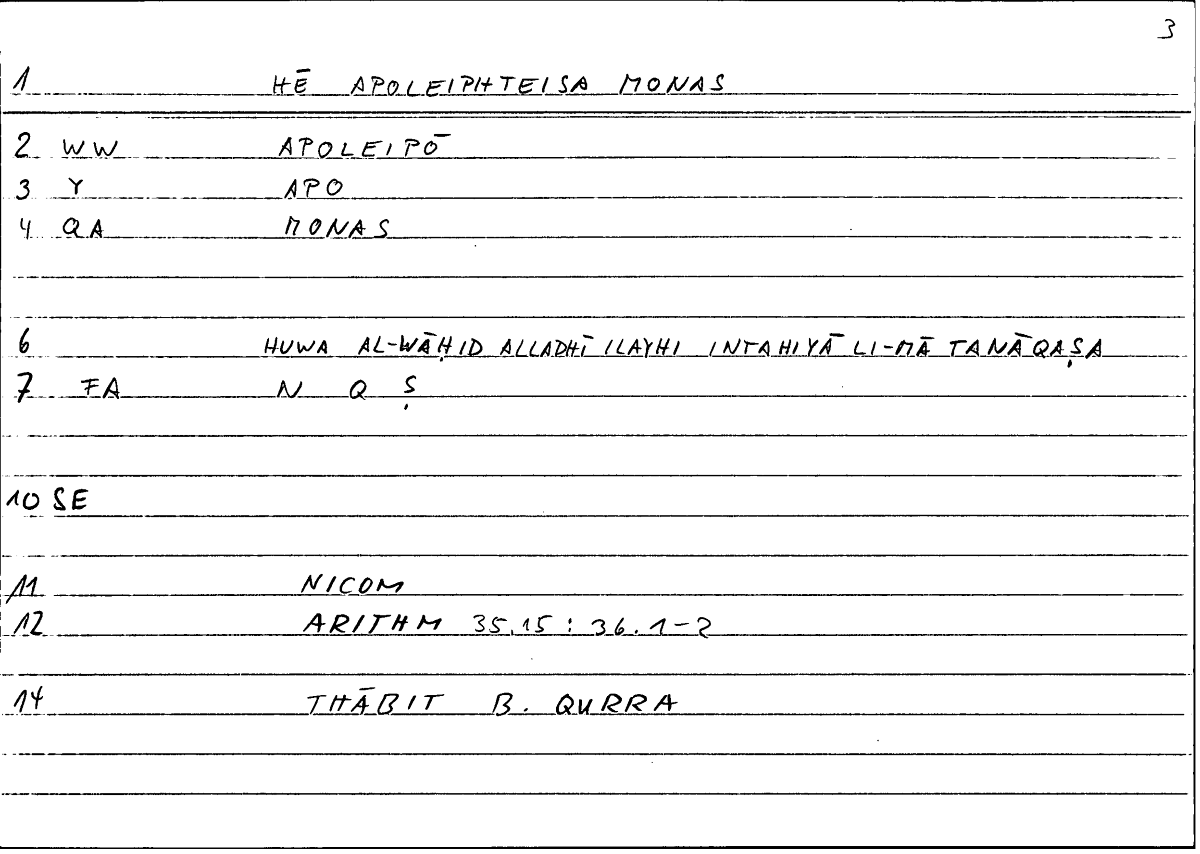 3
1 HĒ APOLEIPHTEISA MONAS
2 WW APOLEIPŌ
3 Y APO
4 QA MONAS
6 HUWA AL-WĀḤID ALLADHĪ ILAYHI INTAHIYĀ LI-MĀ TANĀQAṢA
7 FA N Q Ṣ
10 SE
11 NICOM
12 ARITHM 35.15 : 36.1-2
14 THĀBIT B. QURRA